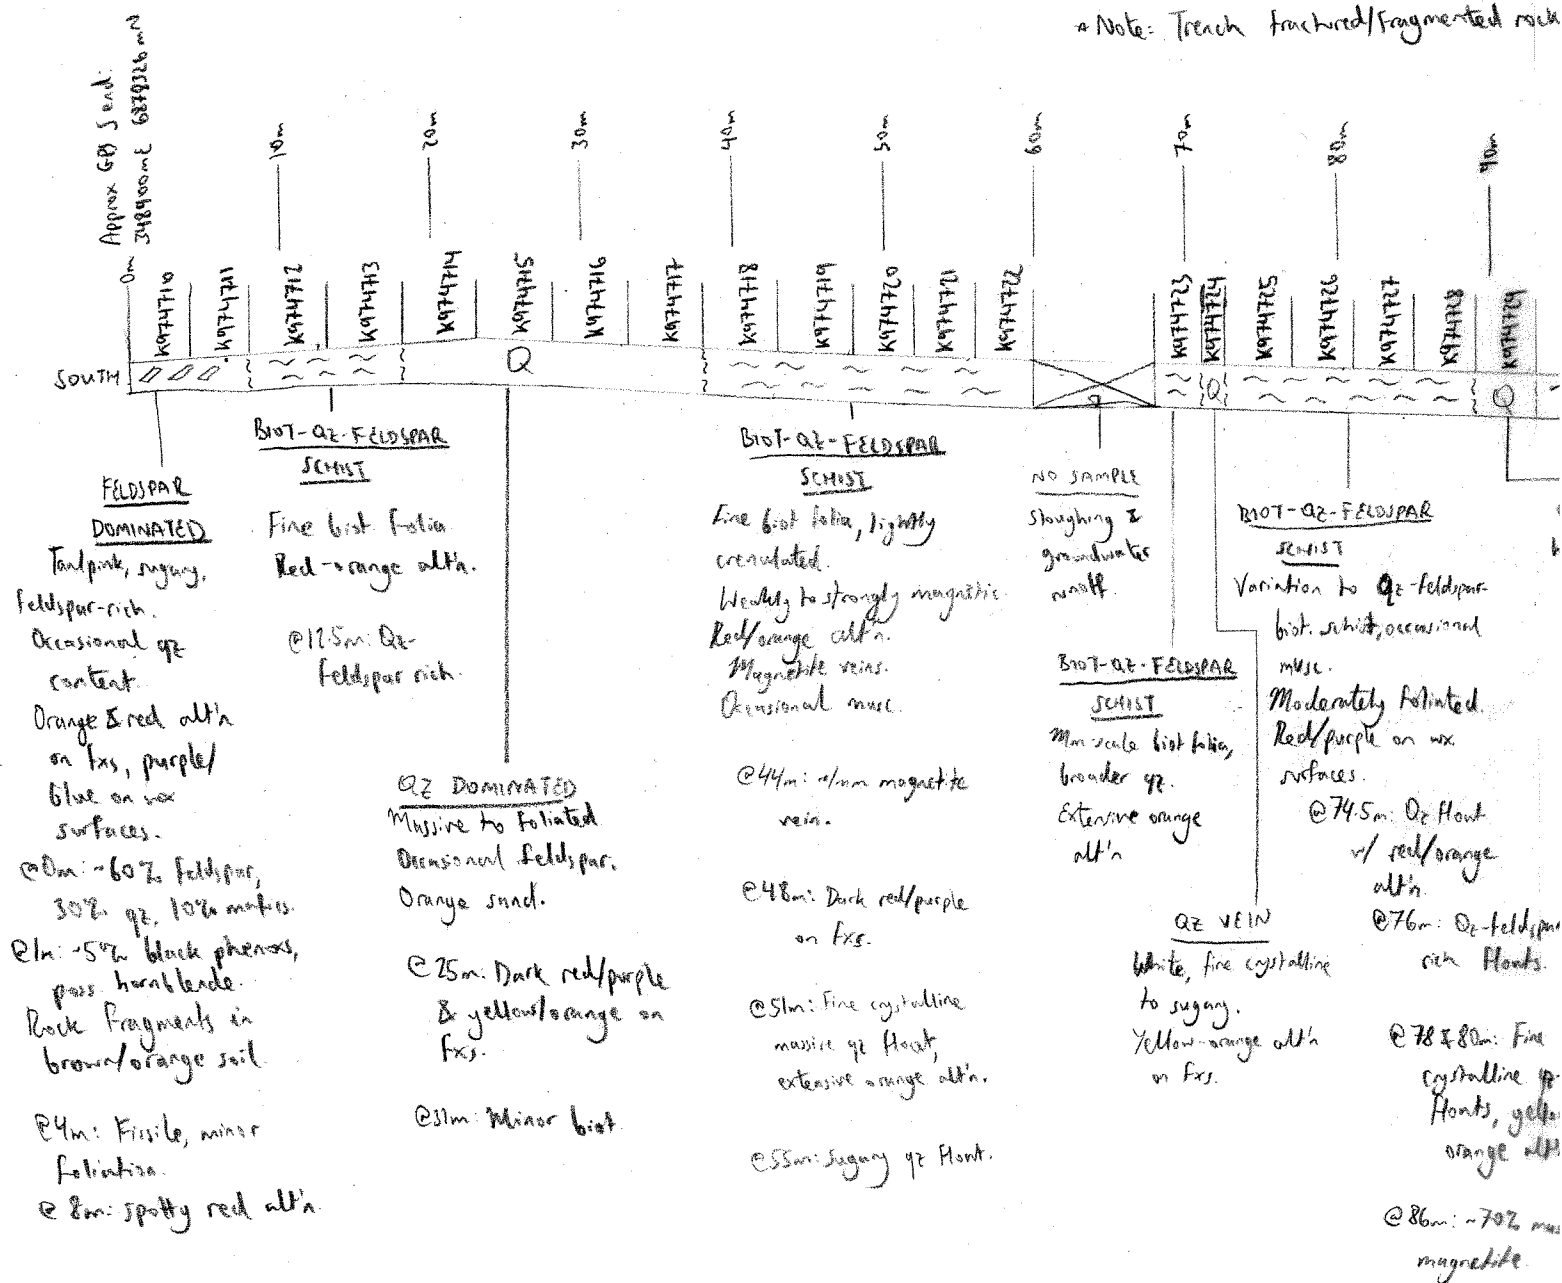 * Note: Trench fractured/fragmented rock
Approx GPS S end:
348900mE 6878326mN
0m
10m
20m
30m
40m
50m
60m
70m
80m
90m
K974710
K974711
K974712
K974713
K974714
K974715
K974716
K974717
K974718
K974719
K974720
K974721
K974722
K974723
K974724
K974725
K974726
K974727
K974728
K974729
SOUTH
Q
Q
Q
FELDSPAR
DOMINATED
Tan/pink, sugary,
feldspar-rich.
Occasional qz
content.
Orange & red alt'n
on fxs, purple/
blue on wx
surfaces.
@0m: ~60% feldspar,
30% qz, 10% mafics.
@1m: ~5% black phenoxs,
poss. hornblende.
Rock fragments in
brown/orange soil
@4m: Fissile, minor
foliation.
@ 8m: spotty red alt'n.
BIOT-QZ-FELDSPAR
SCHIST
Fine biot folia
Red-orange alt'n.
@12.5m: Qz-
feldspar rich.
QZ DOMINATED
Massive to foliated
Occasional feldspar.
Orange sand.
@25m: Dark red/purple
& yellow/orange on
fxs.
@31m: Minor biot
BIOT-QZ-FELDSPAR
SCHIST
Fine biot folia, lightly
crenulated.
Weakly to strongly magnetic.
Red/orange alt'n.
Magnetite veins.
Occasional musc.
@44m: w/mm magnetite
vein.
@48m: Dark red/purple
on fxs.
@51m: Fine crystalline
massive qz float,
extensive orange alt'n.
@55m: Sugary qz float.
NO SAMPLE
Sloughing &
groundwater
runoff.
BIOT-QZ-FELDSPAR
SCHIST
Mm-scale biot folia,
broader qz.
Extensive orange
alt'n
QZ VEIN
White, fine crystalline
to sugary.
Yellow-orange alt'n
on fxs.
BIOT-QZ-FELDSPAR
SCHIST
Variation to Qz-feldspar-
biot. schist, occasional
musc.
Moderately foliated.
Red/purple on wx
surfaces.
@74.5m: Qz float
w/ red/orange
alt'n.
@76m: Qz-feldspar
rich floats.
@78 & 80m: Fine
crystalline qz-
floats,
orange
@86m: ~70%
magnetite.